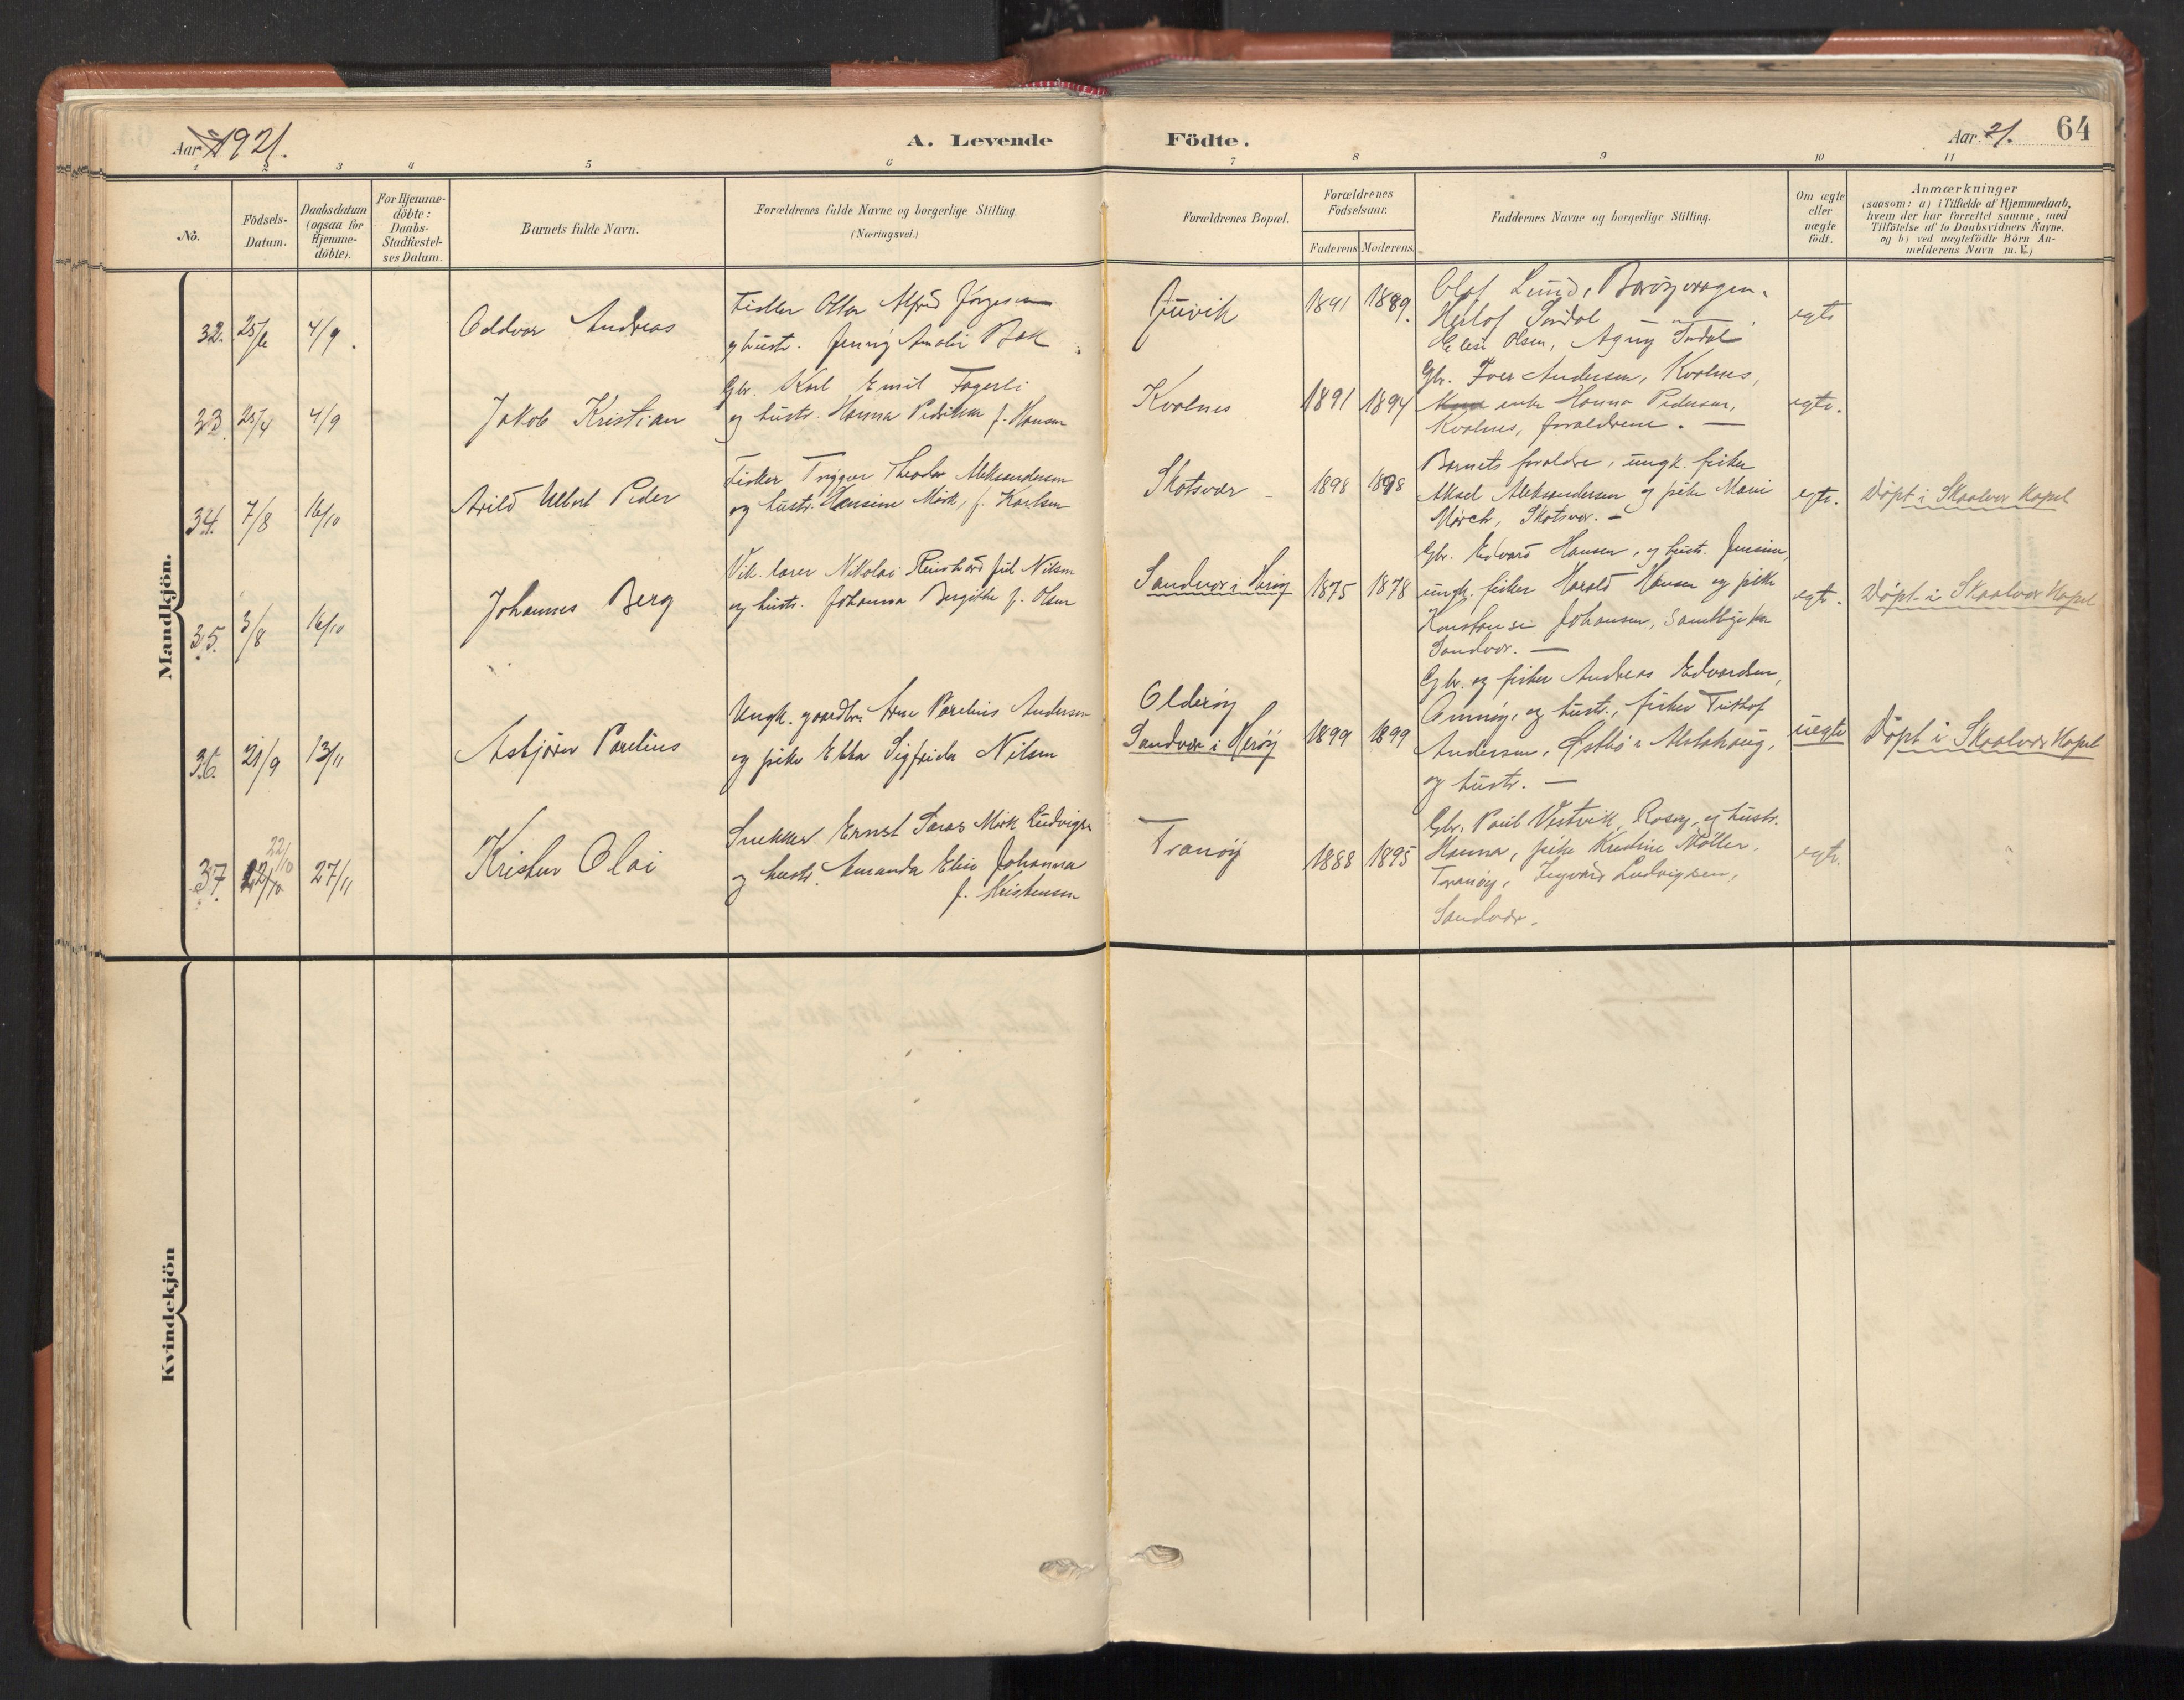 Aar 1921.
A. Levende Födte.
Aar 21. 64
1 2 3 4 5 6 7 8 9 10 11
No.
Födsels-
Datum.
Daabsdatum
(ogsaa for
Hjemme-
döbte).
For Hjemme-
döbte:
Daabs-
Stadfæstel-
ses Datum.
Barnets fulde Navn.
Forældrenes fulde Navne og borgerlige Stilling.
(Næringsvei.)
Forældrenes Bopæl.
Forældrenes
Födselsaar.
Faderens Moderens.
Faddernes Navne og borgerlige Stilling.
Om ægte
eller
uægte
födt.
Anmærkninger
(saasom: a) i Tilfælde af Hjemmedaab,
hvem der har forrettet samme, med
Tilföielse af to Daabsvidners Navne.
og b) ved uægtefödte Börn An-
melderens Navn m. V.)
Mandkjön.
32. 25/6 4/9.
Oddvar Andreas
Fisker Alfred Jørgensen
og hustr. Jenny Amalie Bak
Juvik
1891 1889.
Olaf Lund,
Herlof Indal
Elise Olsen, Agny Indal
egte
33. 25/4 4/9
Jakob Kristian
Gbr. Karl Emil Fagerli
og hustr. Hanna Pedrikke f. Hansen
Kvalnes
1891 1894
Gbr. Iver Andersen, Kvalnes,
enke Hanna Pedersen,
Kvalnes, forældrene. —
egte.
34. 7/8 16/10
Arild Albert Peder
Fisker Trygve Theodor Aleksandersen
og hustr. Hansine Mörk, f. Karlsen
Skotsvær
1898 1898
Barnets forældre, ungk. fisker
Aksel Aleksandersen og pike Marie
Mörch, Skotsvær. —
egte.
Døpt i Skaalvær Kapel
35. 3/8 16/10
Johannes Berg
Vik. lærer Nikolai Reinhard Nilsen
og hustr. Johanna Bergitte f. Olsen
Sandvær i Herøy
1875 1878
Gbr. Edvard Hansen, og hustr. Jensine,
ungk. fisker Harald Hansen og pike
Konstanse Johansen, samtlige fra
Sandvær. —
egte.
Døpt i Skaalvær Kapel
36. 21/9 13/11
Asbjörn Parelius
Ungk. gaardbr. Arne Parelius Andersen
og pike Ebba Sigfrida Nilsen
Olderøy
Sandvær i Herøy
1899 1899
Gbr. og fisker Andreas Edvardsen,
og hustr., fisker
Andersen, Alstahaug,
og hustr. —
uegte
Døpt i Skaalvær Kapel
37. 22/10 22/10 27/11
Kristen Olai
Snekker Ernst Mörk Ludvigsen
og hustr. Amanda Elise Johanna
f. Kristensen
Tranøy
1888 1895
Gbr. Paul Vestvik, Rosøy, og hustr.
Hanna, pike Kredine Møller,
Tranøy, Ingvard Ludvigsen,
Sandvær.
egte.
Kvindekjön